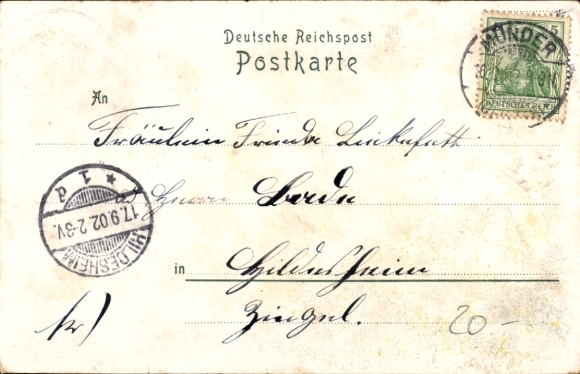 Deutsche Reichspost
Postkarte
MÜNDER
5
DEUTSCHES REICH
An
Fräulein Frieda
Herrn Bode
HILDESHEIM 17.9.02 2-3V. * 1 d
in Hildesheim
20-